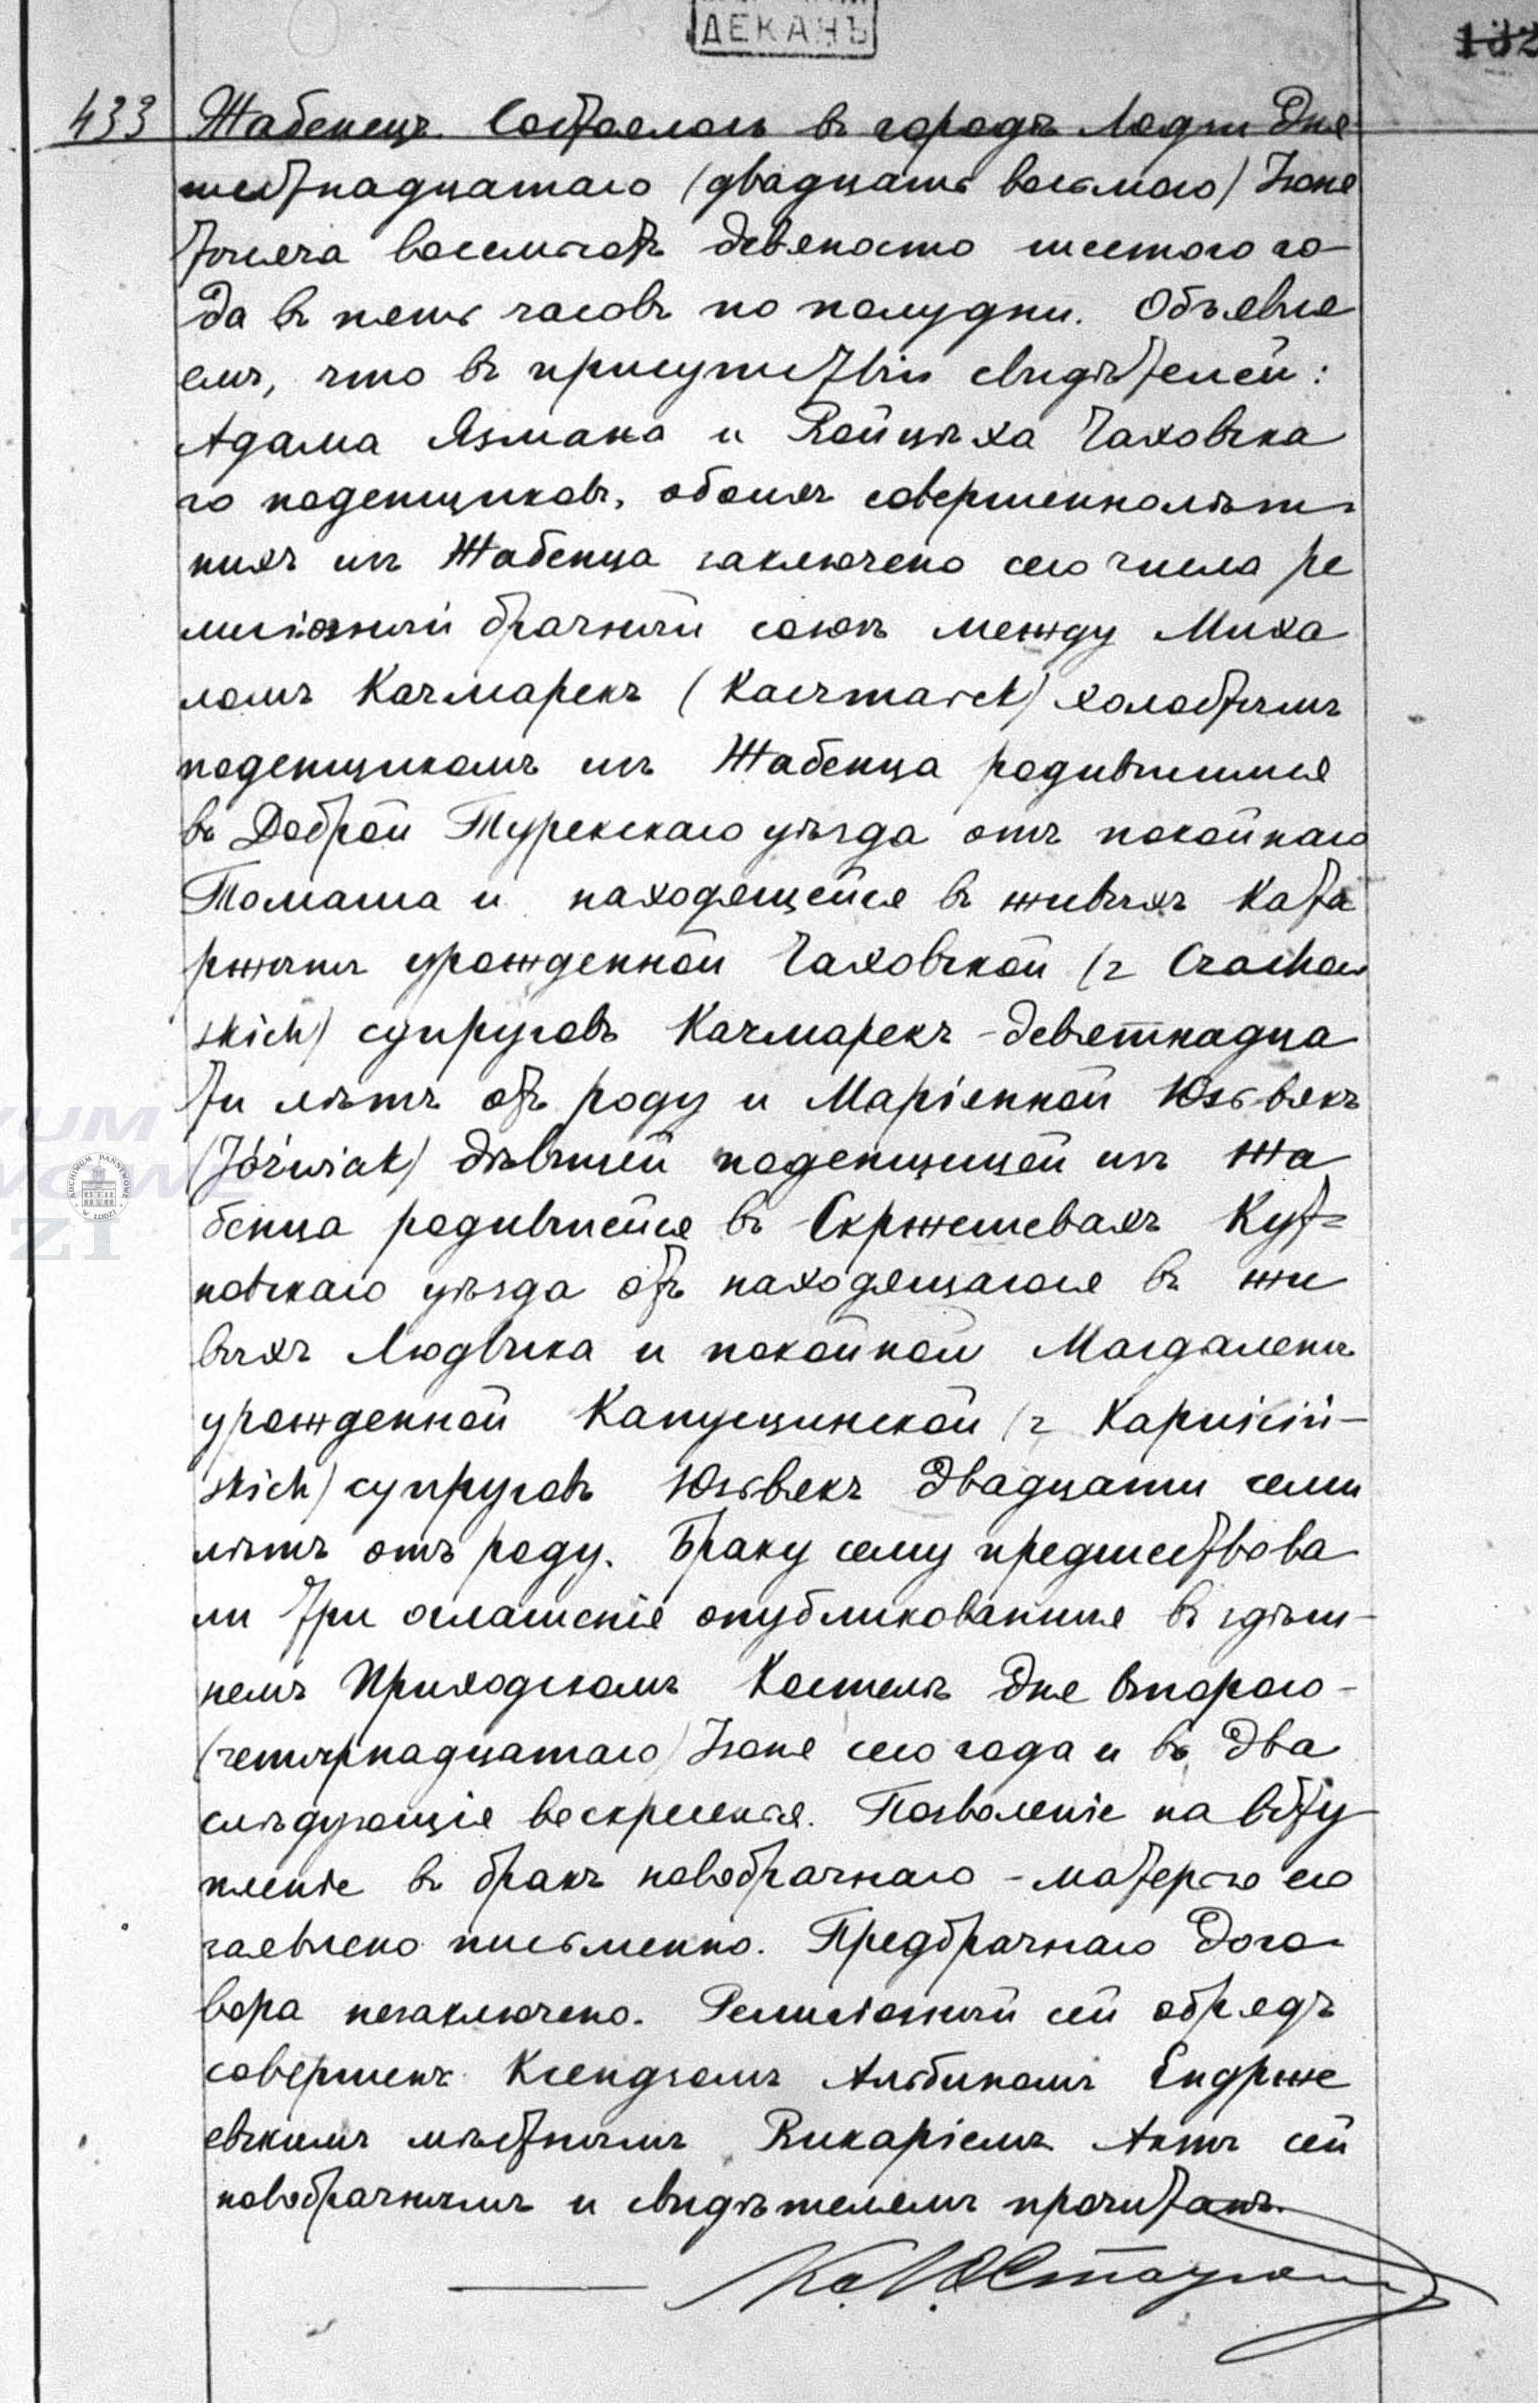 ДЕКАНЪ
132
433 Жабенецъ. Состоялось въ городѣ Лодзи дня
шестнадцатаго (двадцать восьмого) Іюня
тысяча восемьсотъ девяносто шестого го-
да въ пять часовъ по полудни. Объявля
емъ, что въ присутствіи свидѣтелей:
Адама Язмана и Войцѣха Чаховска
го поденщиковъ, обоихъ совершеннолѣт-
нихъ изъ Жабенца заключено сего числа ре
лигіозный брачный союзъ между Миха
ломъ Качмарекъ (Kaczmarek) холостымъ
поденщикомъ изъ Жабенца родившимся
въ Доброй Турекскаго уѣзда отъ покойнаго
Томаша и находящейся въ живыхъ Ката
ржины урожденной Чаховской (z Czachow
skich) супруговъ Качмарекъ - девятнадца
ти лѣтъ отъ роду и Маріянной Юзьвякъ
(Jóźwiak) дѣвицей поденщицей изъ Жа
бенца родившейся въ Скржешевахъ Кут-
новскаго уѣзда отъ находящагося въ жи
выхъ Людвика и покойной Магдалены
урожденной Капусцинской (z Kapuściń-
skich) супруговъ Юзьвякъ двадцати семи
лѣтъ отъ роду. Браку сему предшествова
ли три оглашенія опубликованныя въ здѣш-
немъ Приходскомъ Костелѣ дня второго -
(четырнадцатаго) Іюня сего года и въ два
слѣдующія воскресенья. Позволеніе на всту
пленіе въ бракъ новобрачнаго - матерью его
заявлено письменно. Предбрачнаго дого-
вора незаключено. Религіозный сей обрядъ
совершенъ Ксендзомъ Альбиномъ Ендрже
евскимъ мѣстнымъ Викаріемъ Актъ сей
новобрачнымъ и свидѣтелямъ прочитанъ.